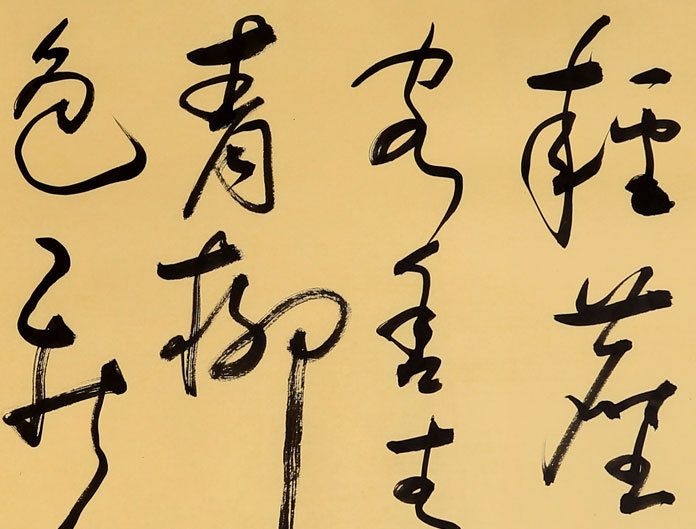 輕塵
客舍青
青柳
色新